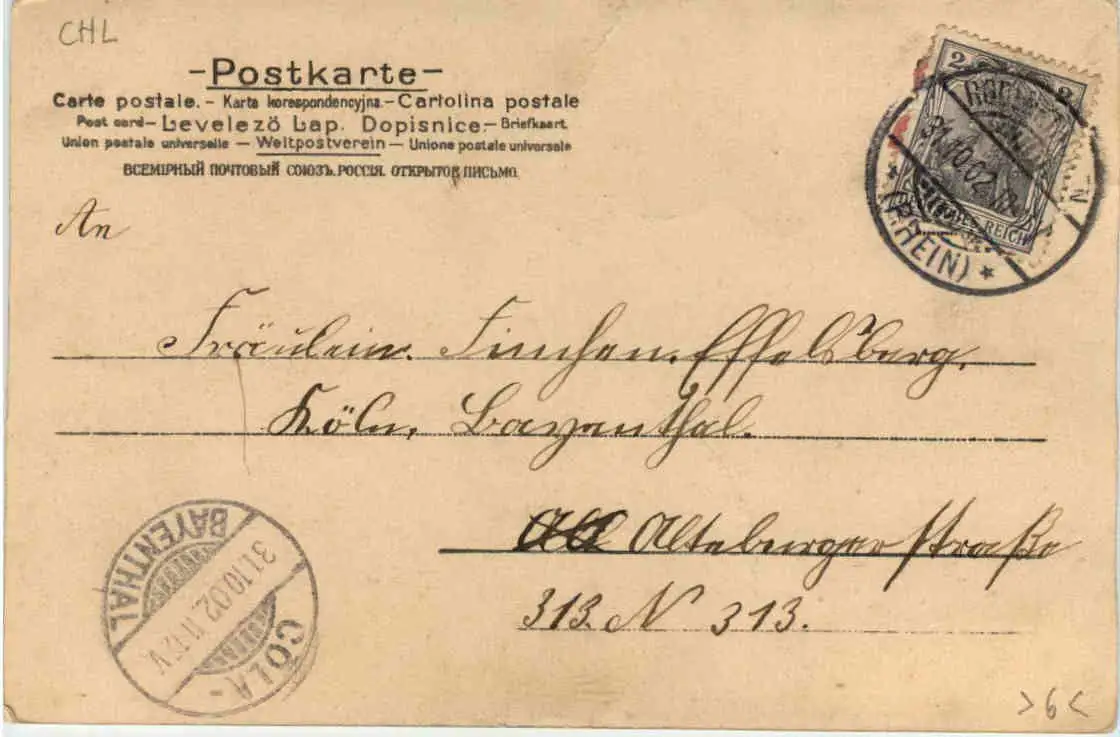 CHL
-Postkarte-
Carte postale. - Karta korespondencyjna - Cartolina postale
Post card - Levelező Lap. Dopisnice - Briefkaart
Union postale universelle - Weltpostverein - Unione postale universale
ВСЕМІРНЫЙ ПОЧТОВЫЙ СОЮЗЪ. РОССІЯ. ОТКРЫТОЕ ПИСЬМО.
2 2
REICH
31.10.02
* (RHEIN) *
An
Fräulein. Finchen. Effelsberg.
Köln, Bayenthal.
Alteburger straße
313. N 313.
CÖLN-
BAYENTHAL
31.10.02. 11-12 V.
>6<